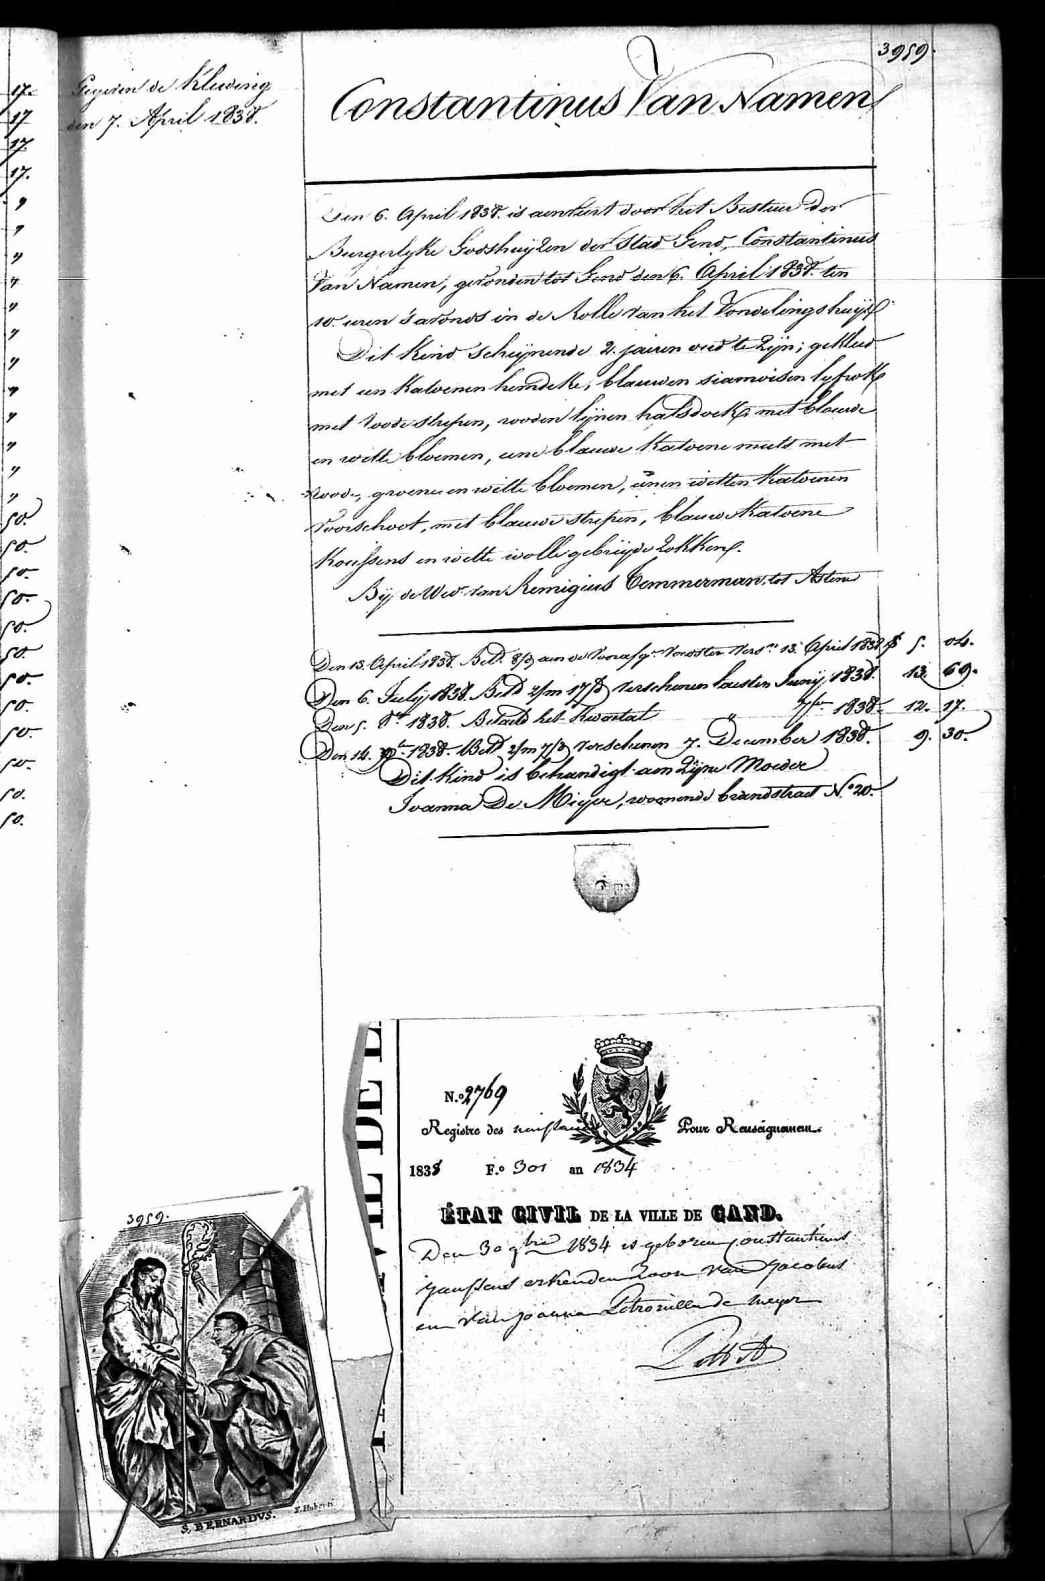 3959.
17.
17
17
17.
"
"
"
"
"
"
"
"
"
"
"
"
50.
50.
50.
50.
50.
50.
50.
50.
50.
50.
50.
50.
Gegeven de kleeding
den 7. April 1838.
Constantinus Van Namen
Den 6. April 1838. is aenveert door het Bestier der
Burgerlyke Godshuyzen der Stad Gend, Constantinus
Van Namen, gevonden tot Gend den 6. April 1838. ten
10. uren s'avonds in de Rolle van het Vondelingshuys.
Dit Kind schynende 2. jairen oud te zyn; gekleed
met een katoenen hemdeke, blauwen siamoisen lyfrok
met roode strepen, rooden lynen halsdoek met blauwe
en witte bloemen, eene blauwe katoene muts met
roode, groene en witte bloemen, eenen witten katoenen
voorschoot, met blauwe strepen, blauw katoene
koussens en witte wolle gebreyde zokken.
By de Wed. van Remigius Temmerman tot Astene
Den 13. April 1838. Bet. aen de Vorster 13. April 1838. 5. 04.
Den 6. July 1838. Bet. verschenen laesten Juny 1838. 13. 69.
Den 5. 1838. Betaeld het kwartael " 7ber 1838. 12. 17.
Den 14. 1838. Bet. verschenen 7. December 1838. 9. 30.
Dit Kind is behandigt aen zyne Moeder
Joanna De Meyer, woonende brandstraet N.o 20.
N.o 2769
Registre des naissances Pour Renseignemen.
1838 F.o 301 an 1834
ÉTAT CIVIL DE LA VILLE DE GAND.
Den 30 9bre 1834 is geboren Constantinus
Janssens erkenden zoon van Jacobus
en van Joanna Petronilla de Meyer
3959.
S. BERNARDVS.